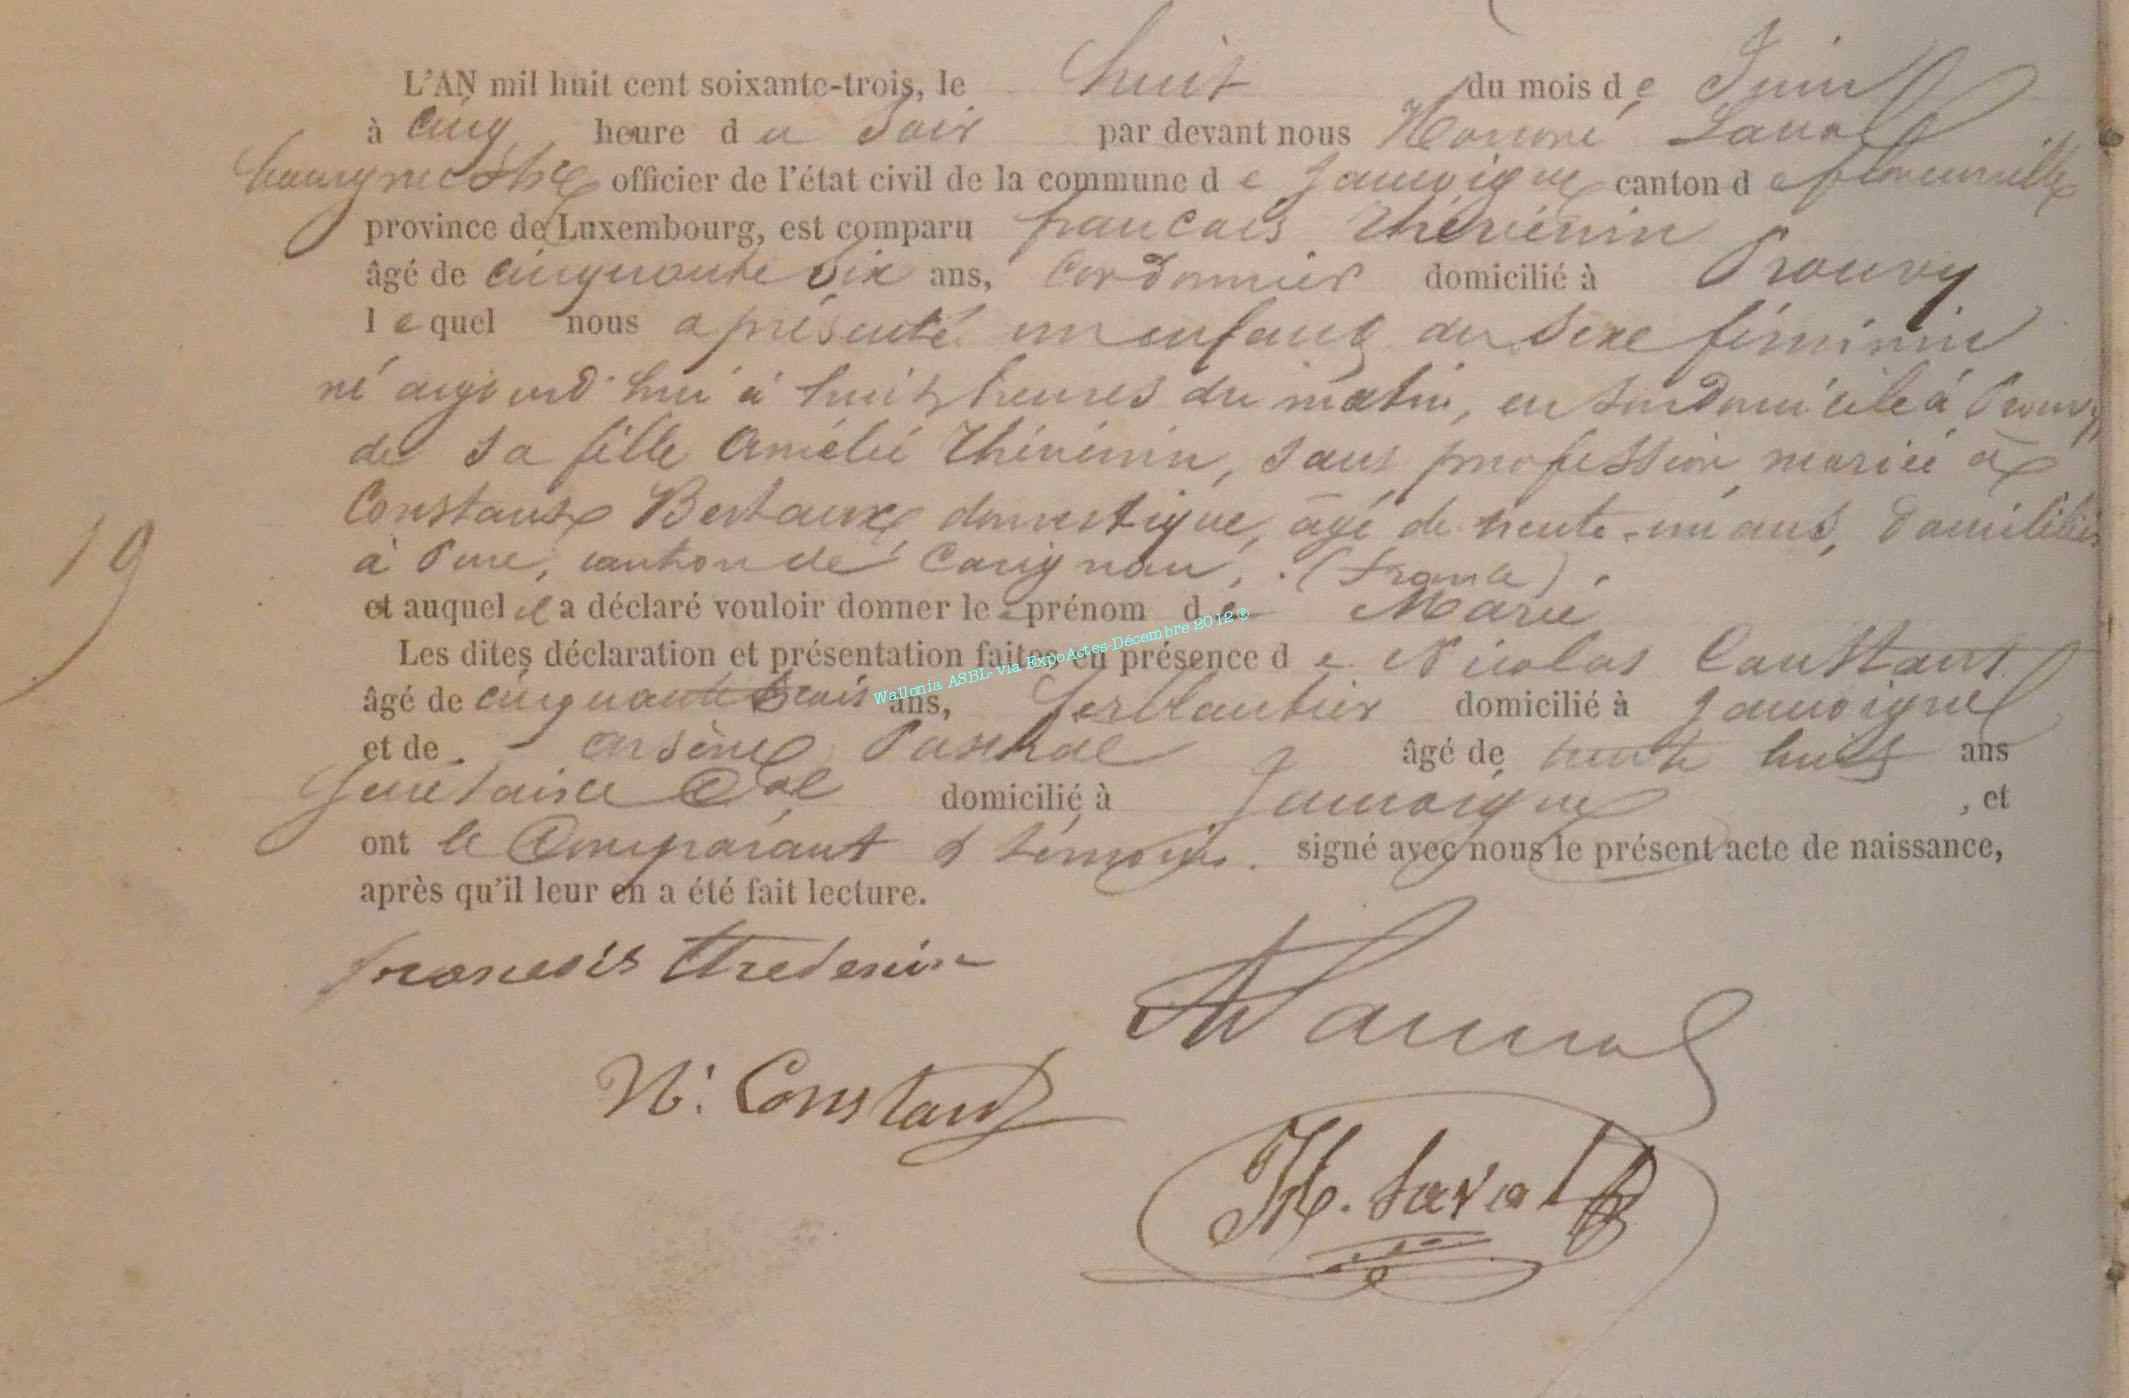 L'AN mil huit cent soixante-trois, le huit du mois de Juin
à cinq heure du Soir par devant nous Honoré Laval
bourgmestre officier de l'état civil de la commune de Jamoigne canton de florenville
province de Luxembourg, est comparu francois Thévénin
âgé de cinquante Six ans, Cordonnier domicilié à Prouvy
lequel nous a présenté un enfant du Sexe féminin
né aujourd'hui à huit heures du matin, en son domicile à Prouvy
de sa fille Amélie Thévénin, sans profession, mariée à
Constant Bertaux, domestique, âgé de trente-un ans, domiciliés
à Pure, canton de Carignan, (France).
19
et auquel il a déclaré vouloir donner le prénom de Marie
Les dites déclaration et présentation faites en présence de Nicolas Constant
âgé de cinquante trois ans, ferblantier domicilié à Jamoigne
et de Arsène Paschal âgé de trente huit ans
Secrétaire Cal domicilié à Jamoigne, et
ont le Comparant & témoins signé avec nous le présent acte de naissance,
après qu'il leur en a été fait lecture.
francois thevenin
N: Constant
H. Laval
Wallonia ASBL- via ExpoActes Décembre 2012 ©